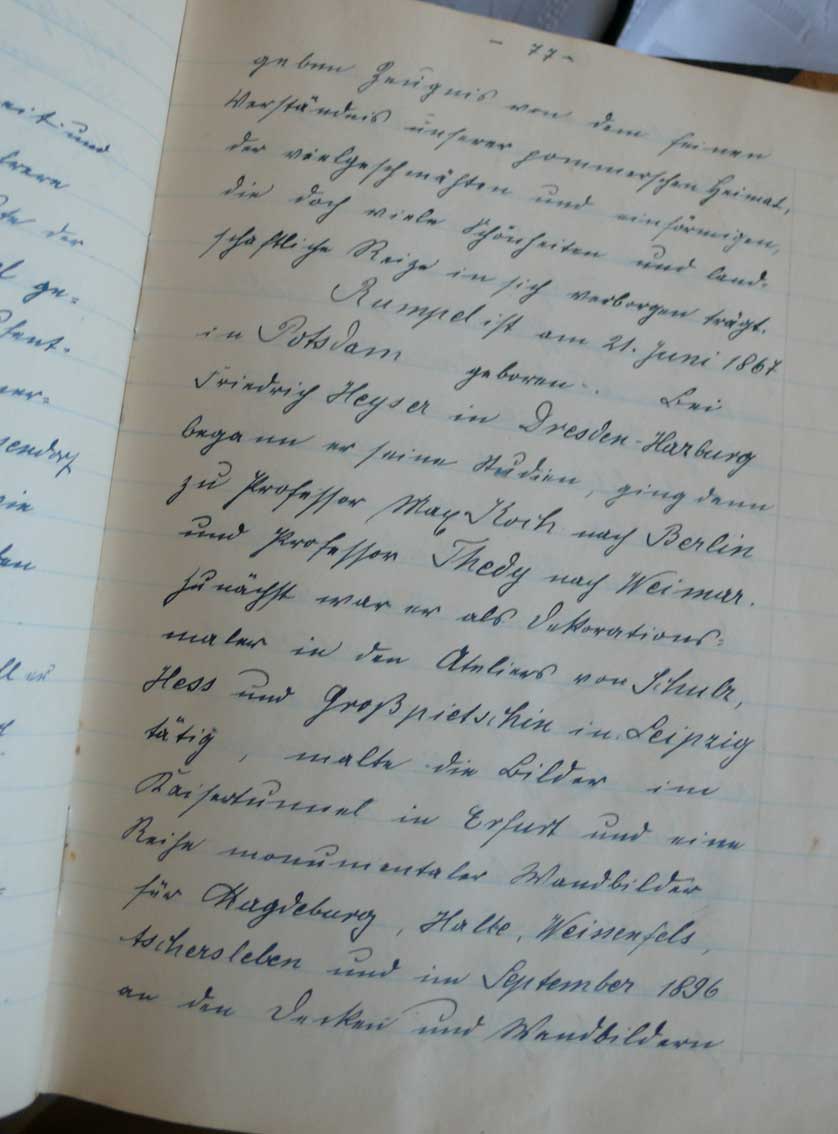 - 77 -
geben Zeugnis von dem feinen
Verständnis unserer pommerschen Heimat,
der vielgeschmähten und einförmigen,
die doch viele Schönheiten und land-
schaftliche Reize in sich verborgen trägt.
Rumpel ist am 21. Juni 1867
in Potsdam geboren. Bei
Friedrich Heyser in Dresden-Harburg
begann er seine Studien, ging dann
zu Professor Max Koch nach Berlin
und Professor Thedy nach Weimar.
Zunächst war er als Dekorations-
maler in den Ateliers von Schulz,
Hess und Großpietschin in Leipzig
tätig, malte die Bilder im
Kaisertunnel in Erfurt und eine
Reihe monumentaler Wandbilder
für Magdeburg, Halle, Weisenfels,
Aschersleben und im September 1896
an den Decken und Wandbildern
eit und
der
ge-
sendorf
den